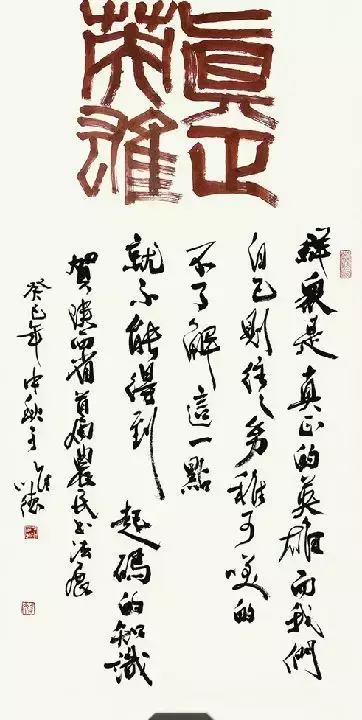 眞正
英雄
群眾是真正的英雄而我們
自己則往々幼稚可笑的
不了解這一點
就不能得到起碼的知識
賀陝西省首届農民书法展
癸巳年中秋于